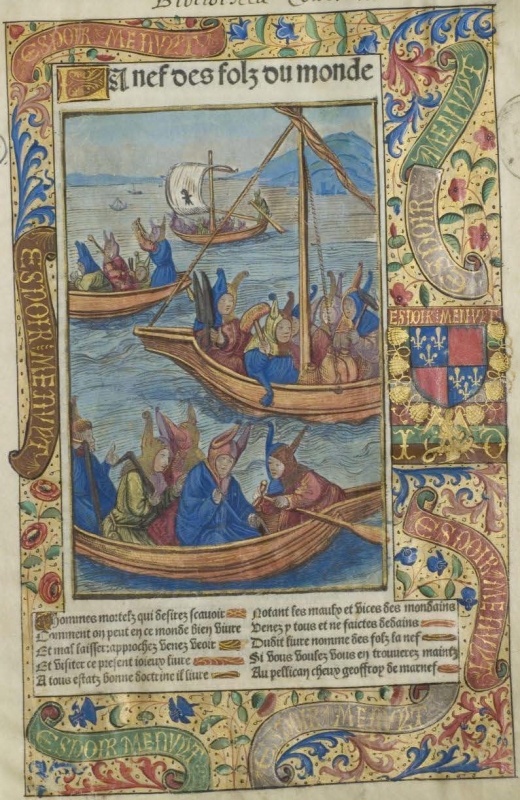 ESPOIR ME NVYT
La nef des folz du monde
MENVYT
ESPOIR
ESPOIR ME NVYT
ESPOIR MENVYT
I O
ESPOIR MENVYT
Hommes mortelz qui desirez scauoir
Comment on peut en ce monde bien viure
Et mal laisser: approchez venez veoir
Et visiter ce present ioieux liure
A tous estatz bonne doctrine il liure
Notant les maulx et vices des mondains
Venez y tous et ne faictes dedains
Dudit liure nomme des folz la nef
Si vous voulez vous en trouuerez maintz
Au pellican cheux geoffroy de marnef
ESPOIR MENVYT
ESPOIR MENVYT